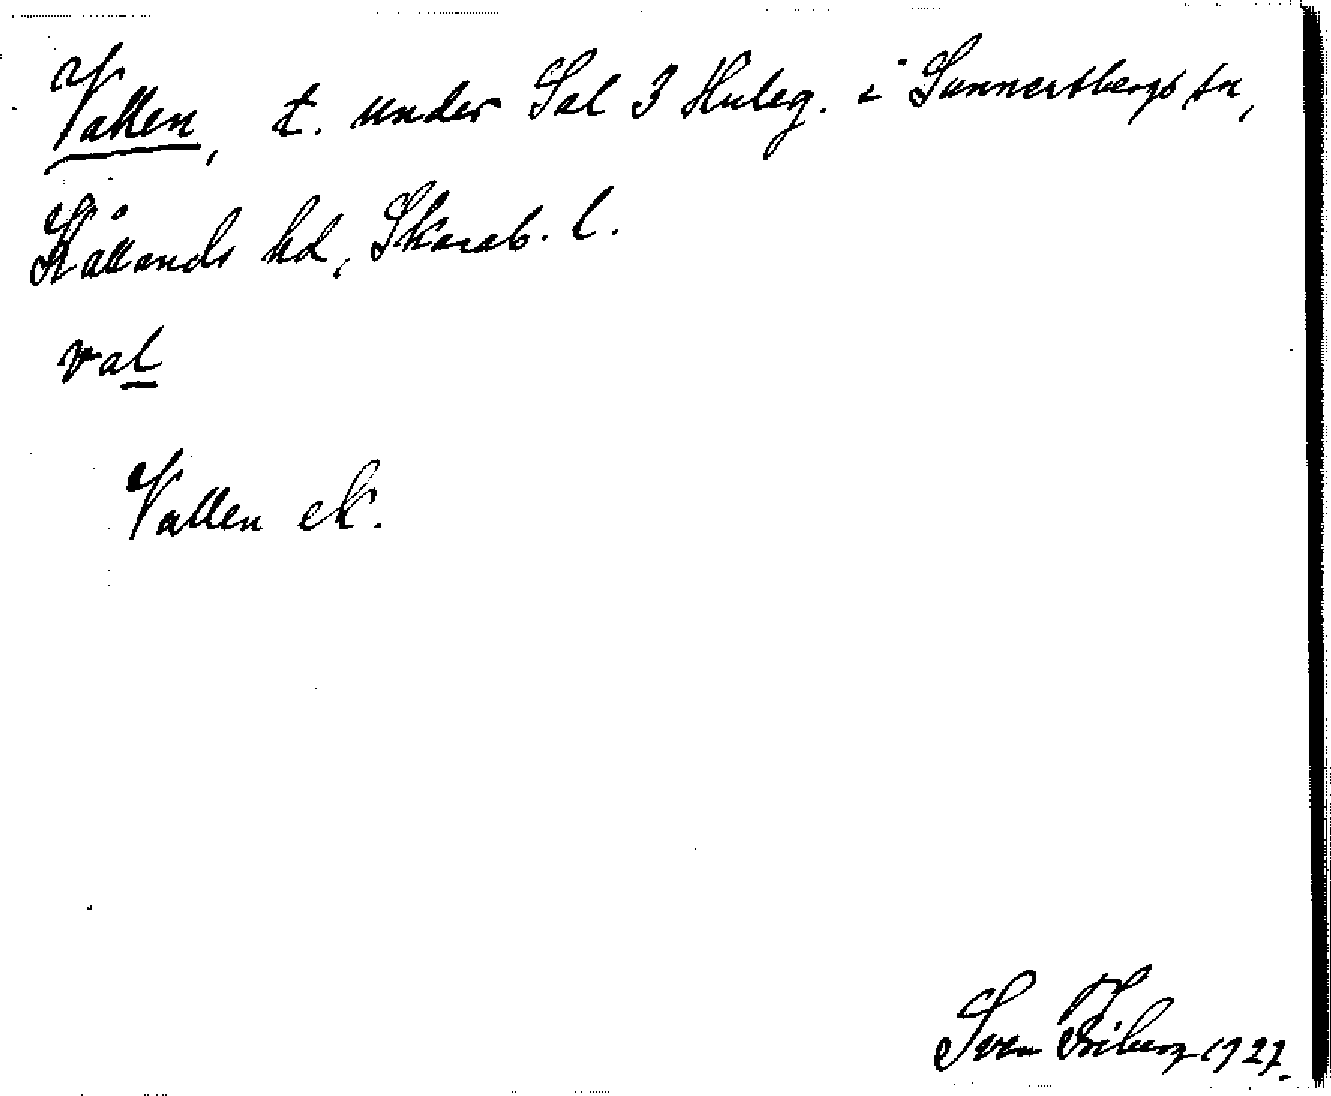 Vallen, t. under Sal 3 Huleg. i Sunnersbergs sn,
Kållands hd, Skarab. l.
val
Vallen ek.
Sven Friberg 1927.